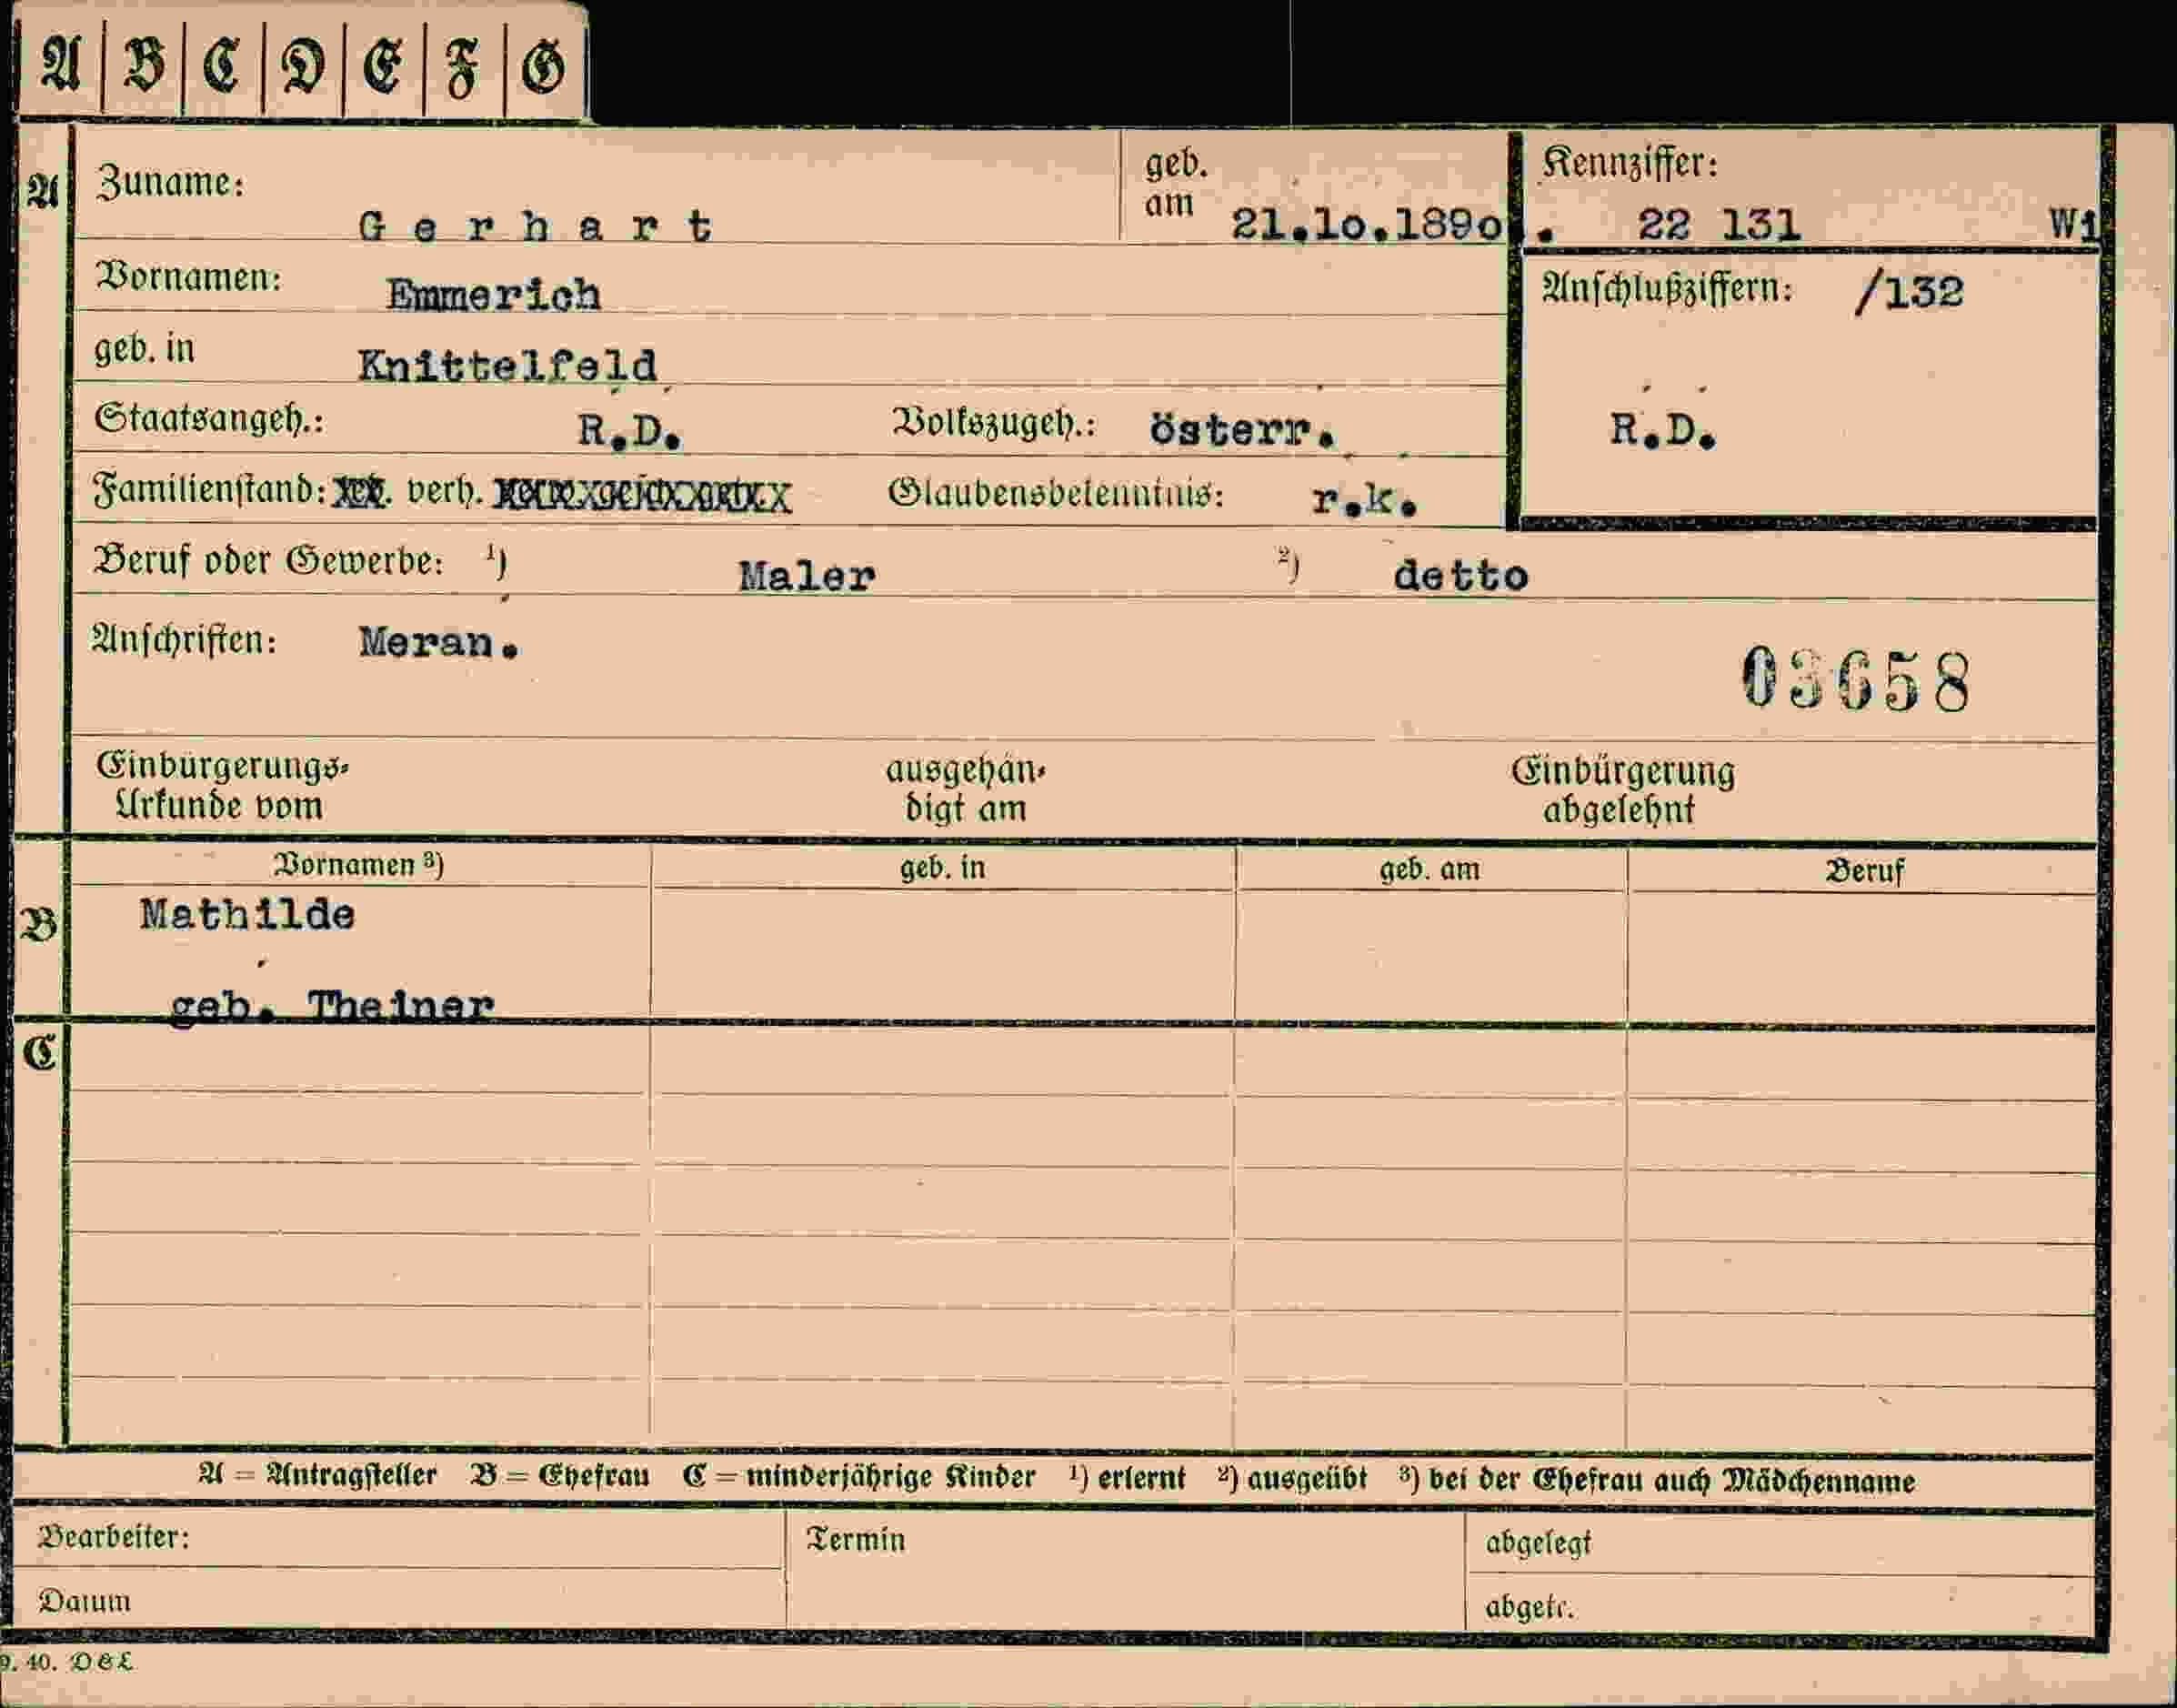 A B C D E F G
A Zuname: Gerhart geb. am 21.10.1890. Kennziffer: 22 131 Wi
Vornamen: Emmerich Anschlußziffern: /132
geb. in Knittelfeld
Staatsangeh.: R.D. Volkszugeh.: österr. R.D.
Familienstand: verh. Glaubensbekenntnis: r.k.
Beruf oder Gewerbe: 1) Maler 2) detto
Anschriften: Meran.
03658
Einbürgerungs- ausgehän- Einbürgerung
Urkunde vom digt am abgelehnt
Vornamen 3) geb. in geb. am Beruf
B Mathilde
geb. Theiner
C
A = Antragsteller B = Ehefrau C = minderjährige Kinder 1) erlernt 2) ausgeübt 3) bei der Ehefrau auch Mädchenname
Bearbeiter: Termin abgelegt
Datum abgetr.
9. 40. D & L